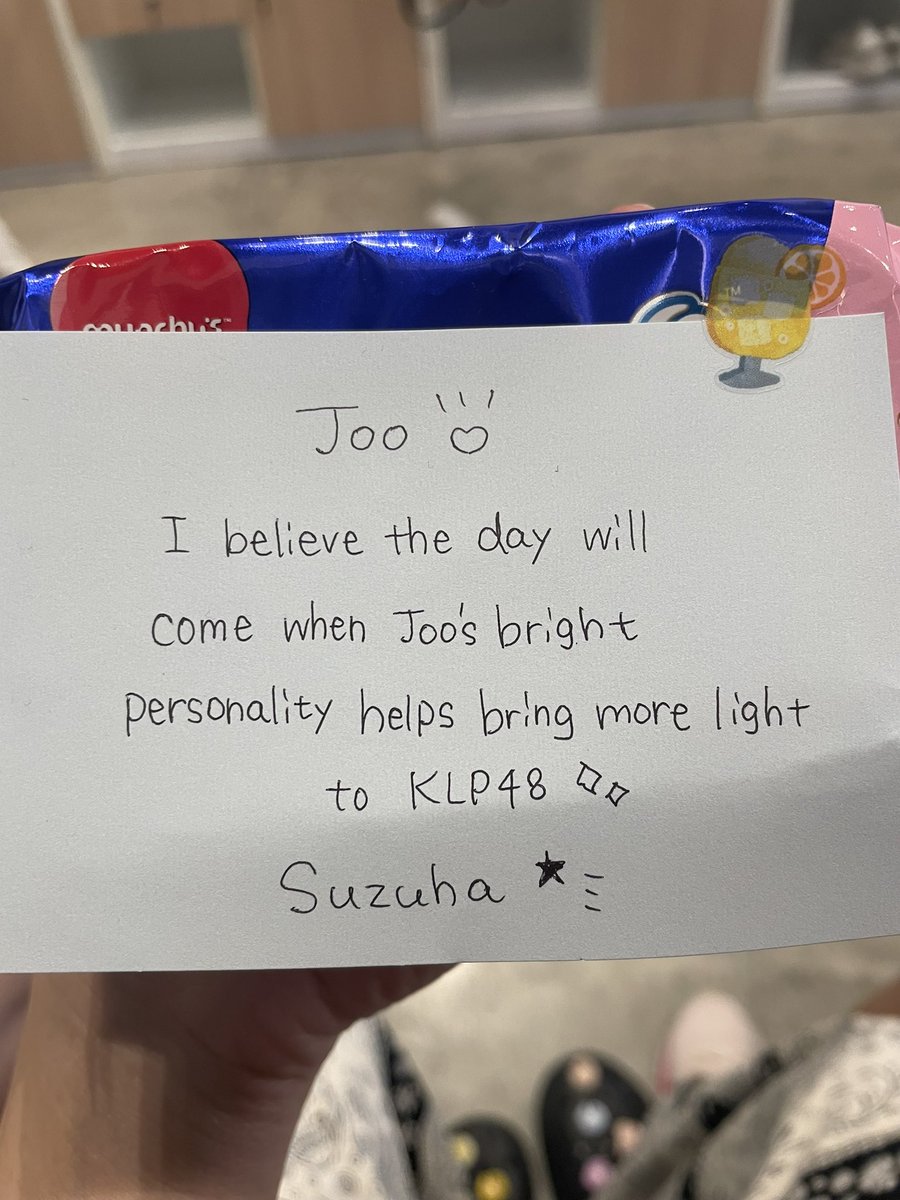 munchy's™
TM
Joo
I believe the day will
come when Joo's bright
personality helps bring more light
to KLP48
Suzuha